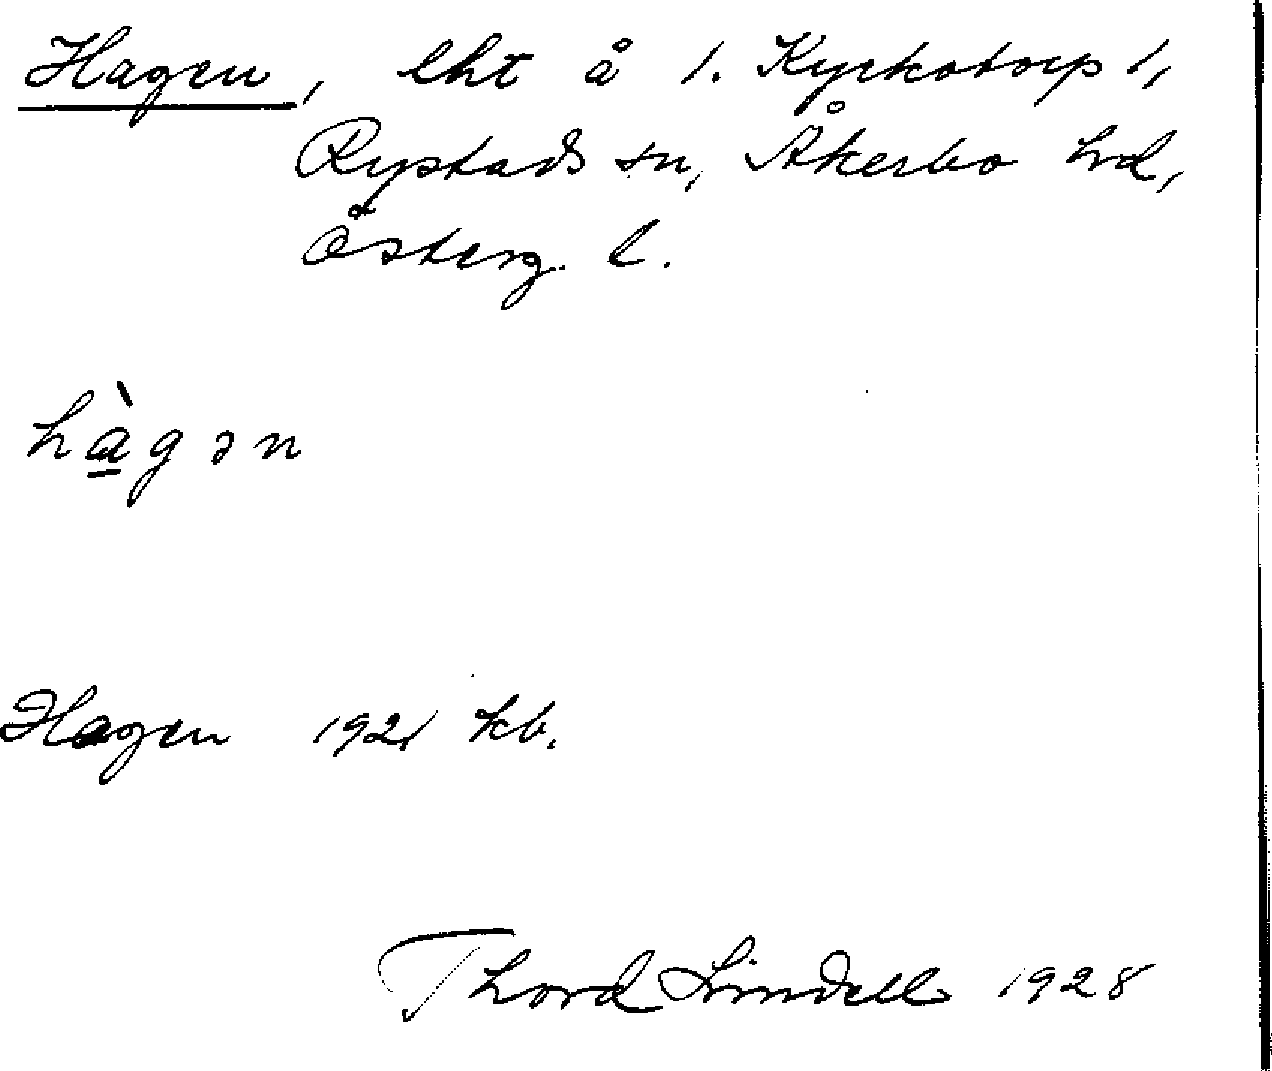 Hagen, lht å 1. Kyrkotorp 1,
Rystads sn, Åkerbo hd,
Österg. l.
hàgən
Hagen 1921 kb.
Thord Lindell 1928